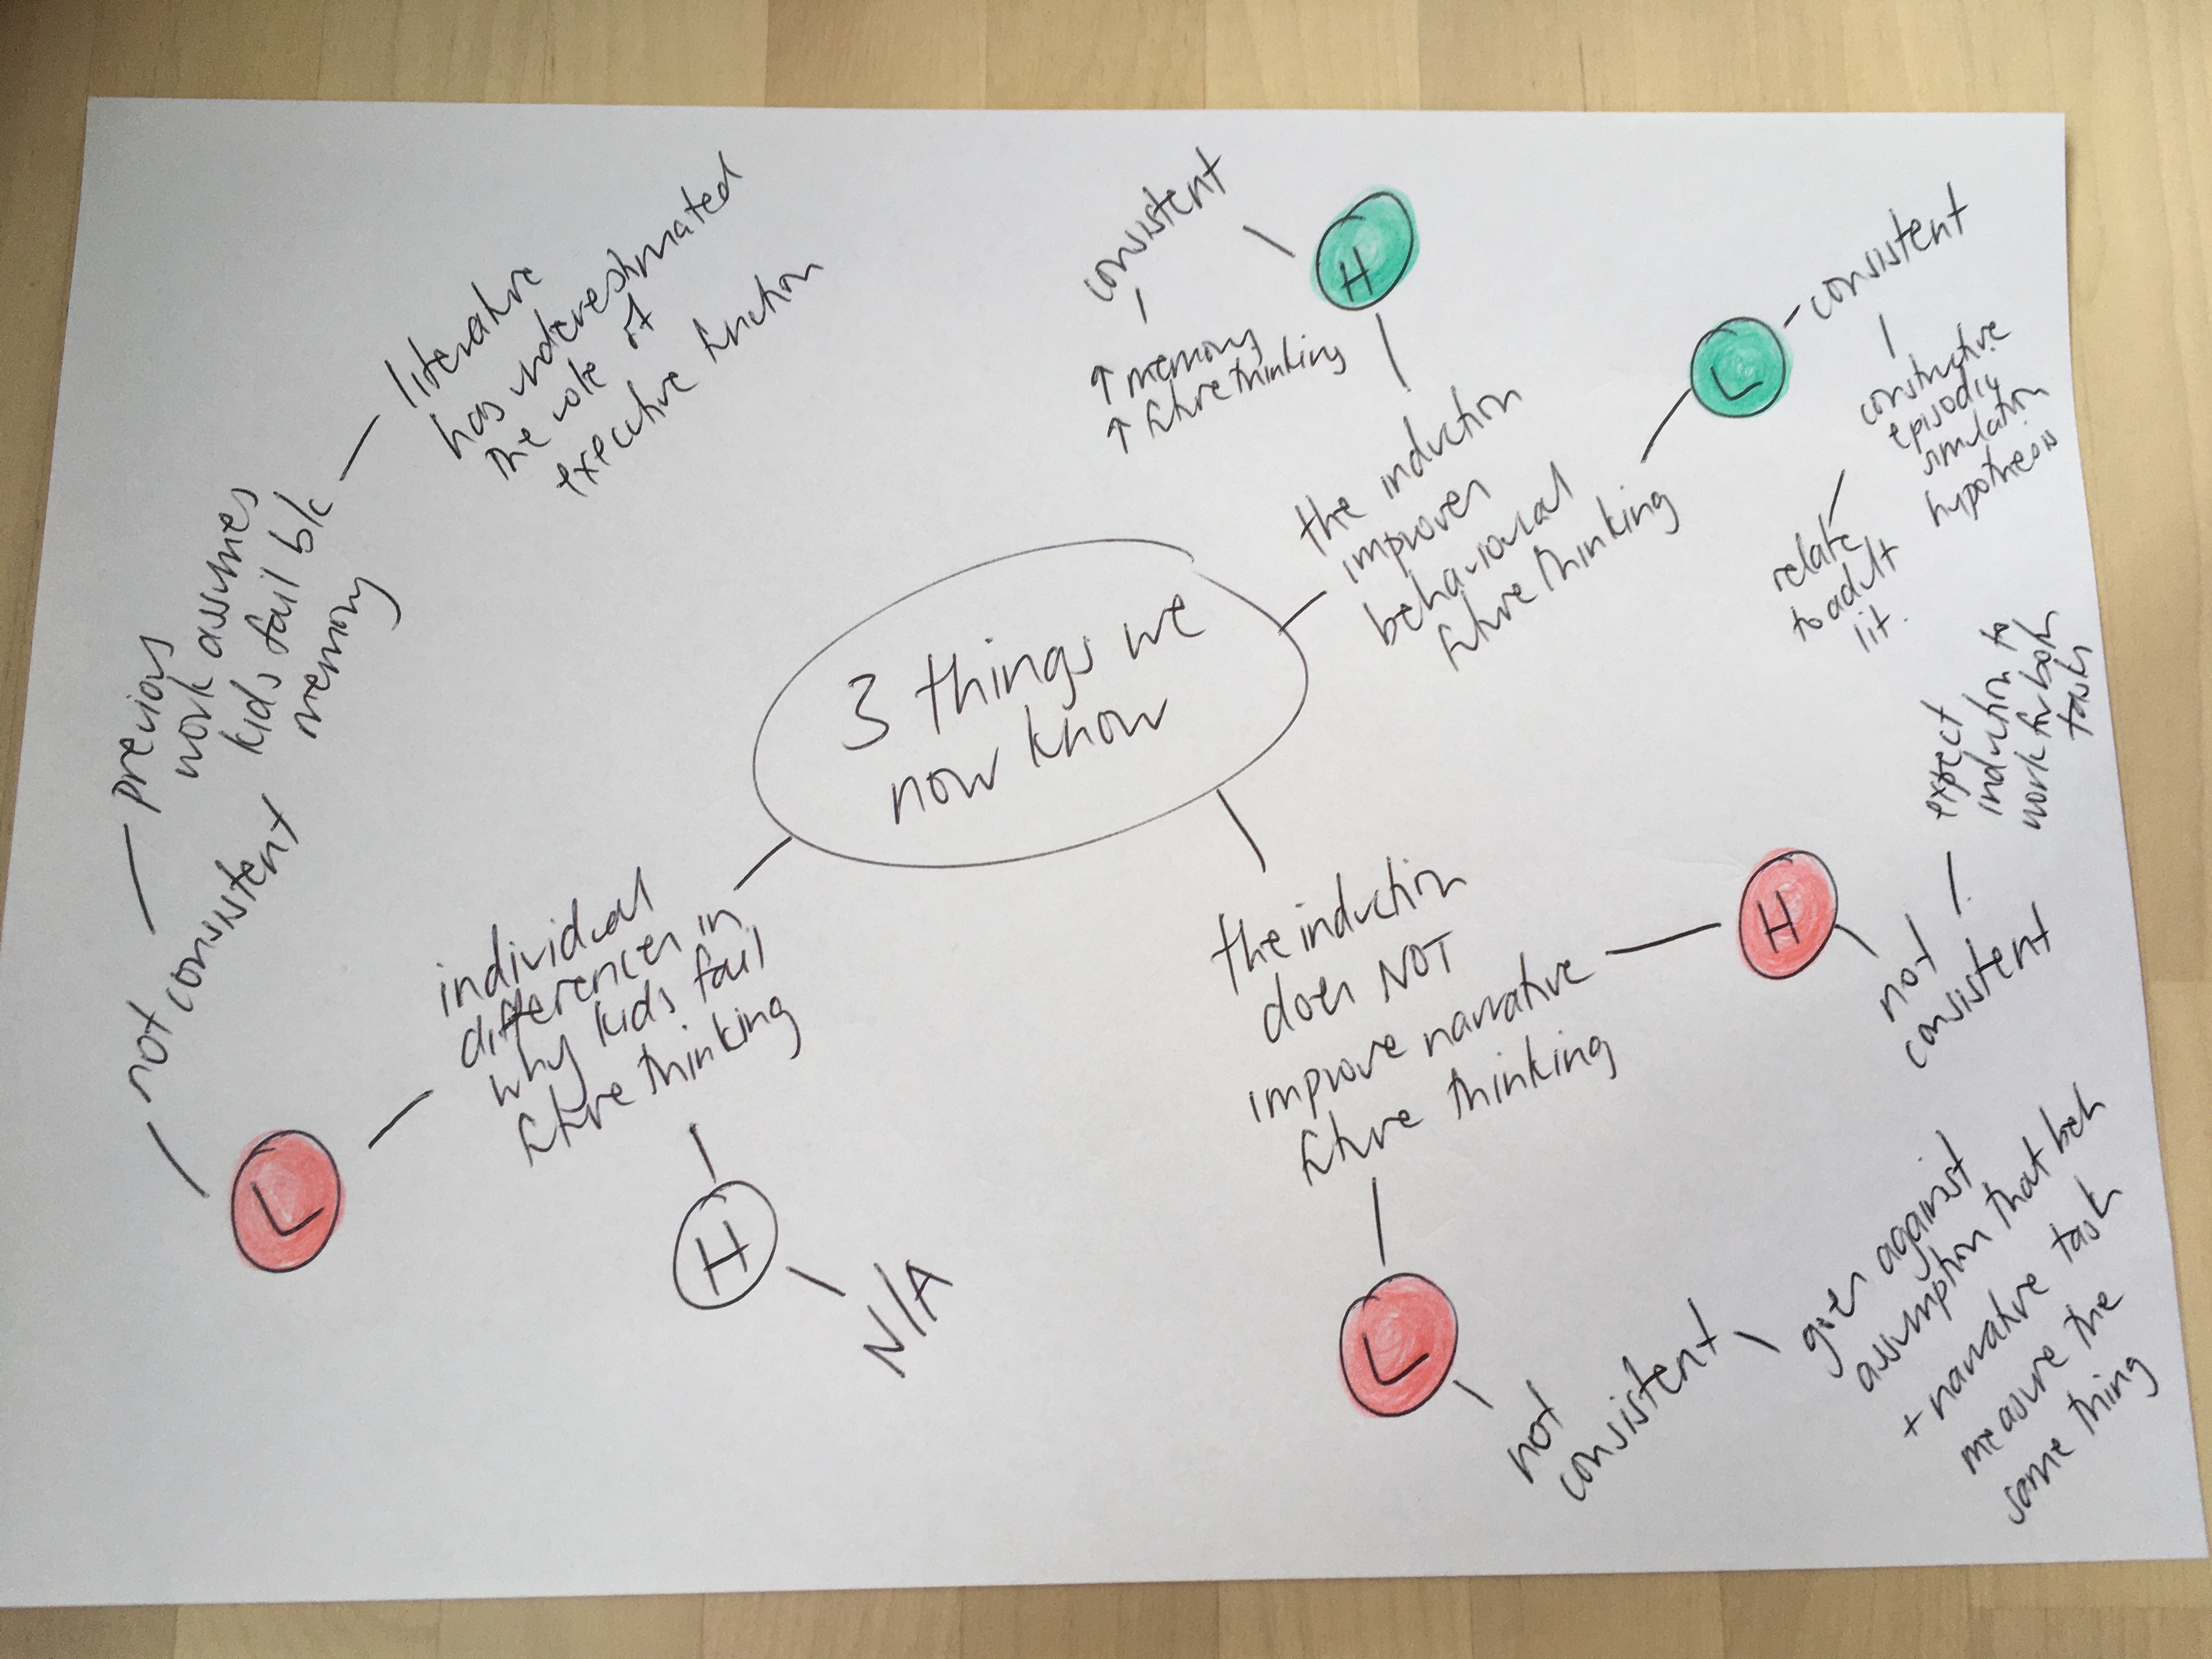 3 things we
now know
the induction
improves
behavioural
future thinking
H
consistent
↑ memory
↑ future thinking
L
consistent
constructive
episodic
simulation
hypothesis
relate
to adult
lit.
the induction
does NOT
improve narrative
future thinking
H
not
consistent
expect
induction to
work for both
tasks
L
not
consistent
goes against
assumption that beh
+ narrative task
measure the
same thing
individual
differences in
why kids fail
future thinking
H
N/A
L
not consistent
previous
work assumes
kids fail b/c
memory
literature
has underestimated
the role of
executive function